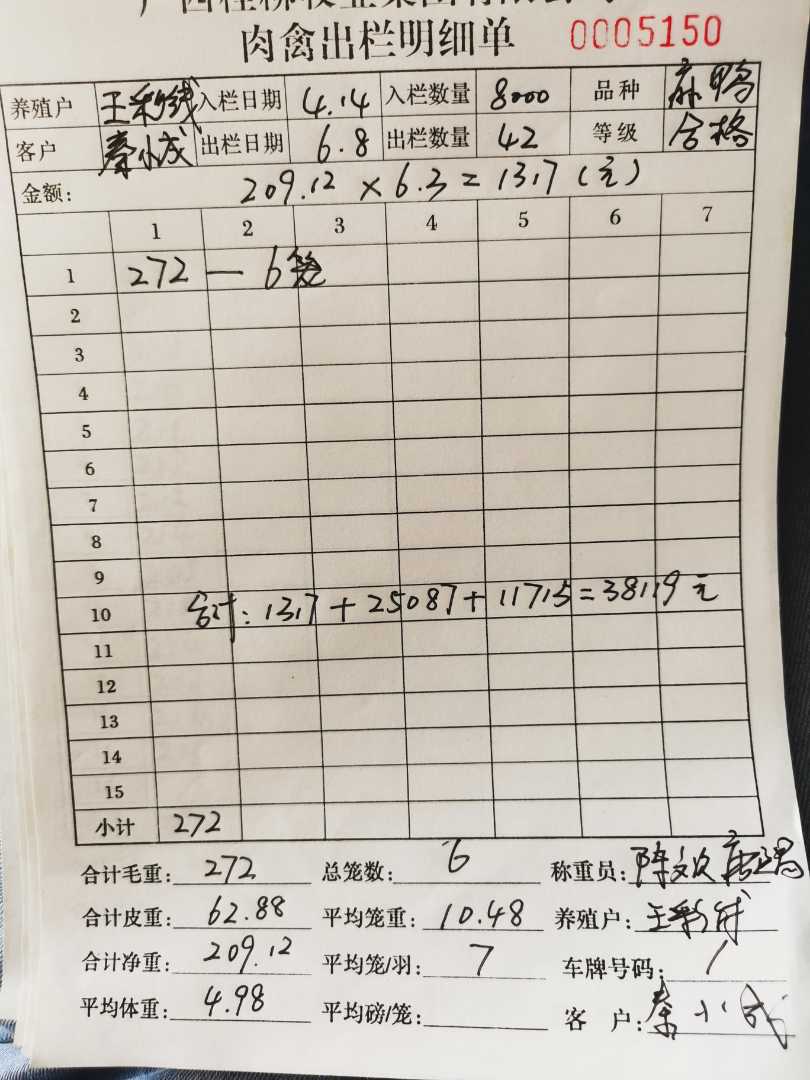 肉禽出栏明细单 0005150
养殖户 王彩钱 入栏日期 4.14 入栏数量 8000 品种 麻鸭
客户 秦小成 出栏日期 6.8 出栏数量 42 等级 合格
金额: 209.12 × 6.3 = 1317 (元)
1 2 3 4 5 6 7
1 272 — 6笼
2
3
4
5
6
7
8
9
10 合计: 1317 + 25087 + 11715 = 38119 元
11
12
13
14
15
小计 272
合计毛重: 272 总笼数: 6 称重员:
合计皮重: 62.88 平均笼重: 10.48 养殖户:
合计净重: 209.12 平均笼/羽: 7 车牌号码: /
平均体重: 4.98 平均磅/笼: 客 户: 秦小成